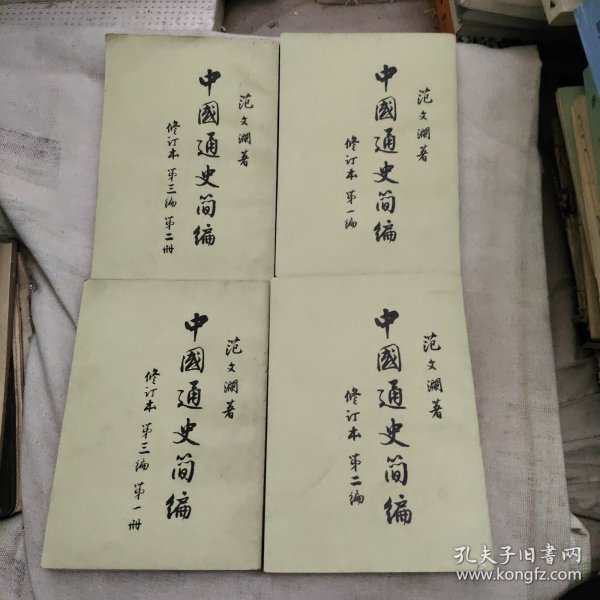 范文澜著
中國通史简编
修订本 第三编 第二册
范文澜著
中國通史简编
修订本 第一编
范文澜著
中國通史简编
修订本 第三编 第一册
范文澜著
中國通史简编
修订本 第二编
孔夫子旧书网
www.kongfz.com